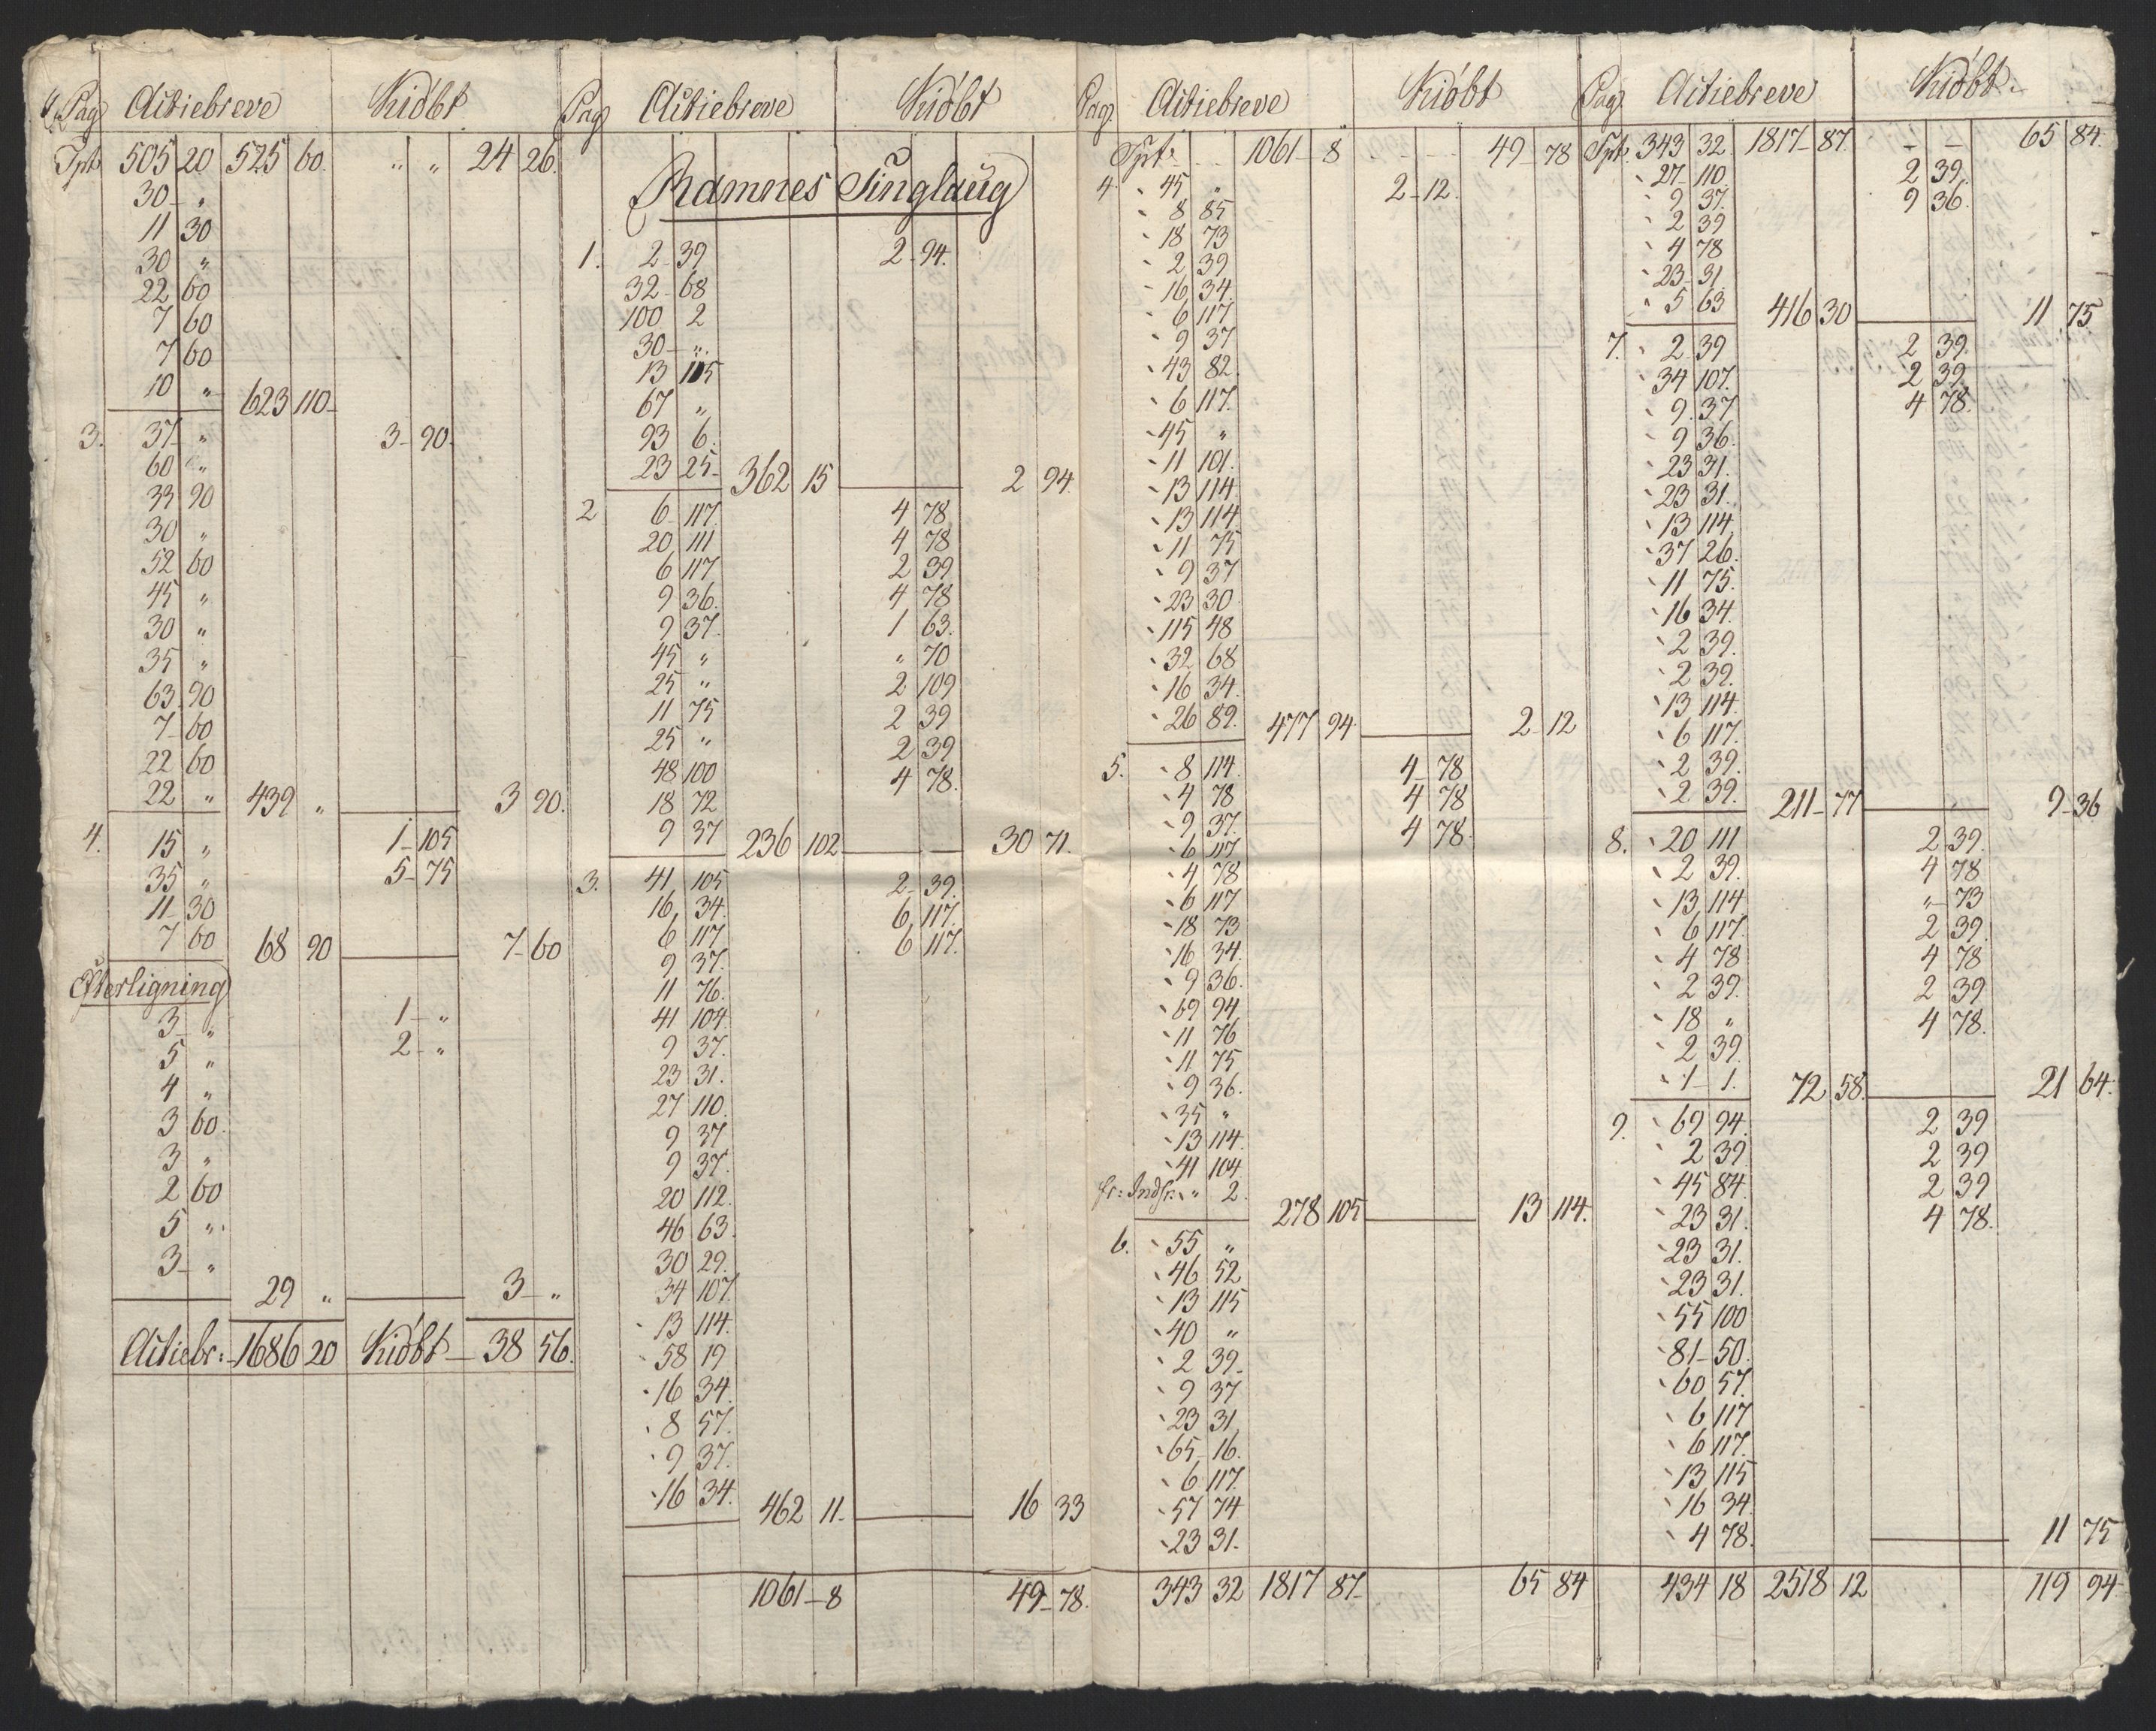 Pag Actiebreve Kiöbt
Tpt 505 20 525 60. " " 24 26.
30 "
11 30
30 "
22 60
7 60
7 60
10 " 623 110
3. 37 " 3 90.
60 "
33 90
30 "
52 60
45 "
30 "
35 "
63 90
7 60
22 60
22 " 439 " 3 90.
4. 15 " 1 105
35 " 5 75
11 30
7 60 68 90 7 60
Efterligning
3 " 1 "
5 " 2 "
4 "
3 60.
3 "
2 60
5 "
3 "
29 " 3 "
Actiebr: 1686 20 Kiöbt 38 56.
Pag Actiebreve Kiöbt
Ramnes Tinglaug
1. 2 39 2 94.
32 68
100 2
30 "
13 105
67 "
93 6.
23 25 362 15 2 94
2 6 117. 4 78
20 111 4 78
6 117 2 39
9 36. 4 78
9 37. 1 63.
45 " " 70
25 " 2 109
11 75 2 39
25 " 2 39
48 100 4 78.
18 72
9 37 236 102 30 71.
3. 41 105 2 39.
16 34. 6 117.
6 117 6 117.
9 37.
11 76.
41 104.
9 37.
23 31.
27 110.
9 37
9 37.
20 112.
46 63.
30 29.
34 107.
13 114.
58 19
16 34.
8 57.
9 37.
16 34. 462 11 16 33
1061 8 49 78.
Pag. Actiebreve Kiöbt
Tpt. 1061 8 49 78
4. 45 " 2 12.
8 85
18 73
2 39
16 34.
6 117.
9 37
43 82.
6 117.
45 "
11 101.
13 114.
13 114.
11 75
9 37
23 30
115 48
32 68
16 34.
26 89. 477 94. 2 12
5. 8 114. 4 78
4 78 4 78
9 37. 4 78.
6 117
4 78
6 117
18 73
16 34.
9 36.
69 94
11 76
11 75
9 36.
35 "
13 114.
41 104
" 2. 278 105 13 114.
6. 55 "
46 52
13 115
40 "
2 39
9 37
23 31.
65 16.
6 117.
57 74
23 31.
343 32 1817 87 65 84
Pag. Actiebreve Kiöbt
Tpt. 343 32 1817 87. 65 84.
27 110. 2 39.
9 37. 9 36.
2 39
4 78
23 31.
5 63 416 30 11 75.
7. 2 39 2 39.
34 107. 2 39.
9 37 4 78.
9 36.
23 31.
23 31.
13 114.
37 26.
11 75.
16 34.
2 39.
2 39.
13 114.
6 117.
2 39.
2 39. 211 77 9 36
8. 20 111 2 39.
2 39. 4 78
13 114 " 73
6 117. 2 39.
4 78 4 78
2 39. 2 39
18 " 4 78.
2 39.
1 1. 72 58. 21 64.
9. 69 94. 2 39
2 39. 2 39
45 84. 2 39
23 31. 4 78.
23 31.
23 31.
55 100
81 50.
60 57.
6 117
6 117.
13 115
16 34.
4 78. 11 75
434 18 2518 12 119 94